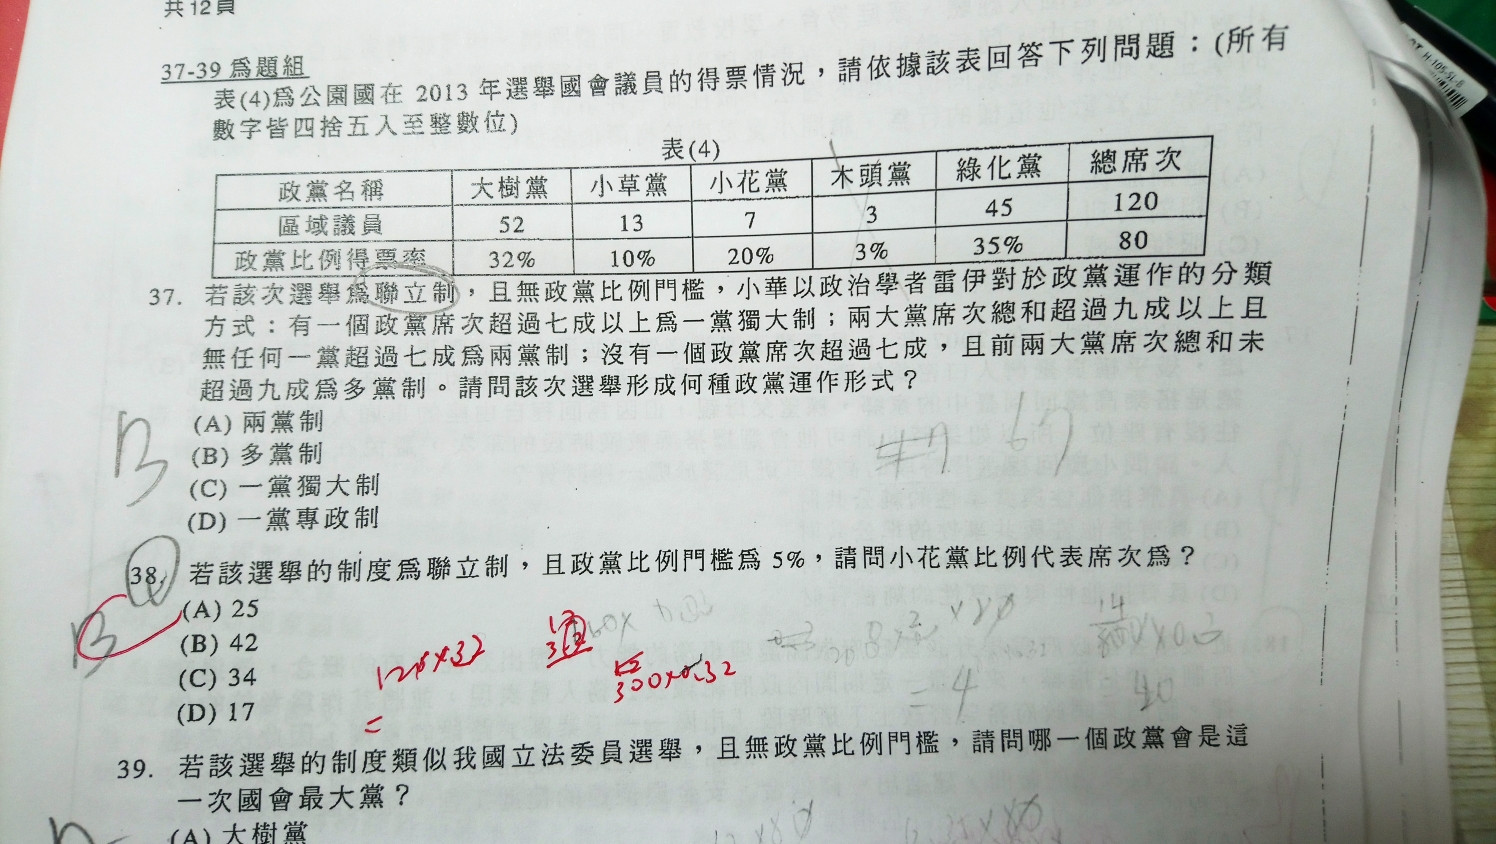 共12頁
37-39 為題組
表(4)為公園國在 2013 年選舉國會議員的得票情況，請依據該表回答下列問題：(所有
數字皆四捨五入至整數位)
表(4)
政黨名稱 大樹黨 小草黨 小花黨 木頭黨 綠化黨 總席次
區域議員 52 13 7 3 45 120
政黨比例得票率 32% 10% 20% 3% 35% 80
37. 若該次選舉為聯立制，且無政黨比例門檻，小華以政治學者雷伊對於政黨運作的分類
方式：有一個政黨席次超過七成以上為一黨獨大制；兩大黨席次總和超過九成以上且
無任何一黨超過七成為兩黨制；沒有一個政黨席次超過七成，且前兩大黨席次總和未
超過九成為多黨制。請問該次選舉形成何種政黨運作形式？
(A) 兩黨制
(B) 多黨制
(C) 一黨獨大制
(D) 一黨專政制
B
38. 若該選舉的制度為聯立制，且政黨比例門檻為 5%，請問小花黨比例代表席次為？
(A) 25
(B) 42
(C) 34
(D) 17
B
39. 若該選舉的制度類似我國立法委員選舉，且無政黨比例門檻，請問哪一個政黨會是這
一次國會最大黨？
(A) 大樹黨